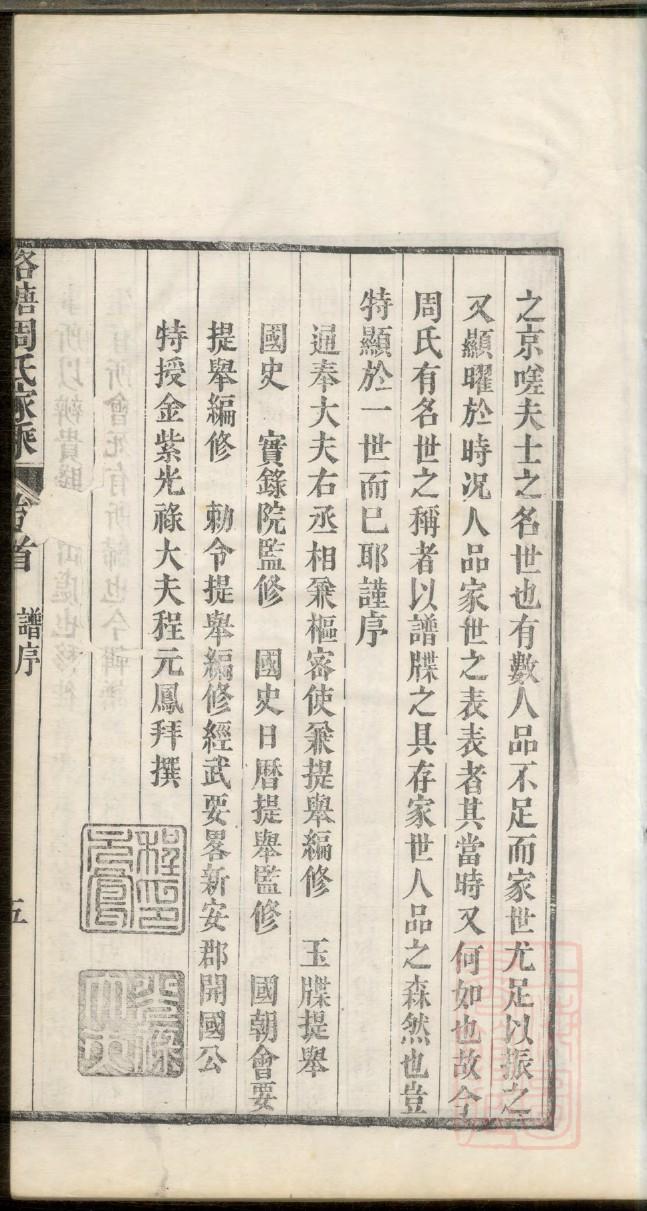 之京嗟夫士之名世也有數人品不足而家世尤足以振之
又顯曜於時况人品家世之表表者其當時又何如也故今
周氏有名世之稱者以譜牒之具存家世人品之森然也豈
特顯於一世而已耶謹序
通奉大夫右丞相兼樞密使兼提舉編修　玉牒提舉
國史　實錄院監修　國史日曆提舉監修　國朝會要
提舉編修　勅令提舉編修經武要畧新安郡開國公
特授金紫光祿大夫程元鳳拜撰
周氏家乘　首　譜序　五